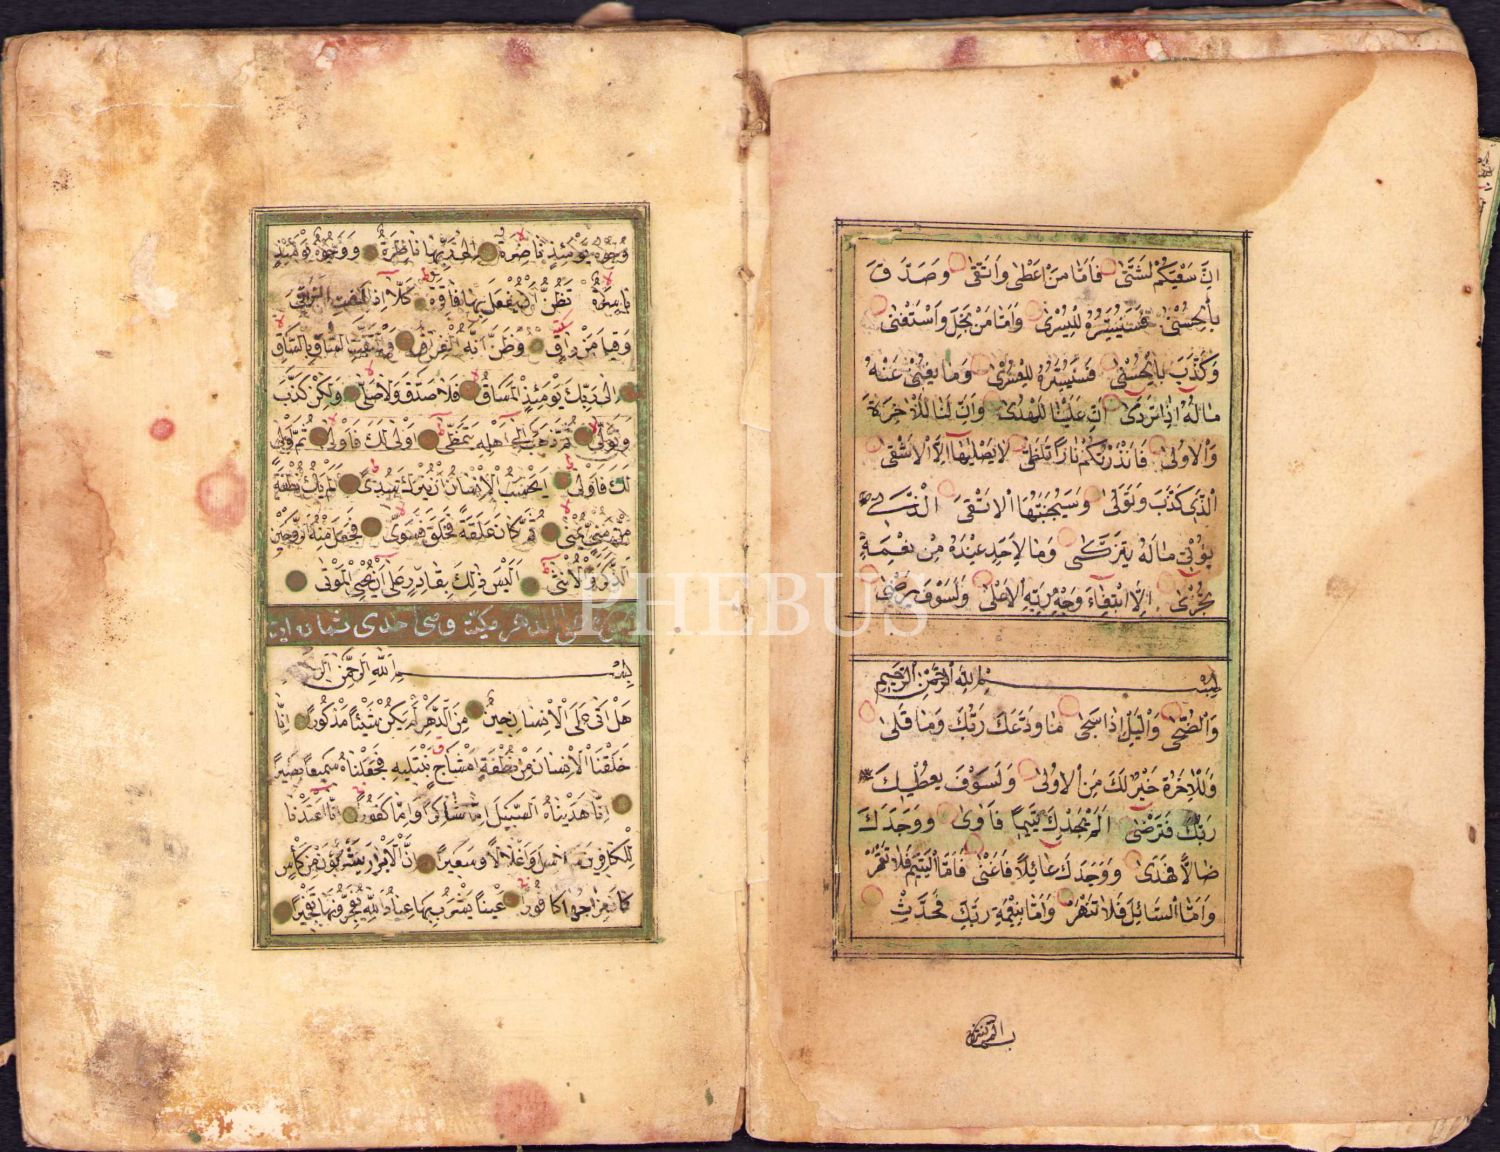 اِنَّ سَعْيَكُمْ لَشَتّٰى فَاَمَّا مَنْ اَعْطٰى وَاتَّقٰى وَصَدَّقَ
بِالْحُسْنٰى فَسَنُيَسِّرُهُ لِلْيُسْرٰى وَاَمَّا مَنْ بَخِلَ وَاسْتَغْنٰى
وَكَذَّبَ بِالْحُسْنٰى فَسَنُيَسِّرُهُ لِلْعُسْرٰى وَمَا يُغْنٖى عَنْهُ
مَالُهُ اِذَا تَرَدّٰى اِنَّ عَلَيْنَا لَلْهُدٰى وَاِنَّ لَنَا لَلْاٰخِرَةَ
وَالْاُولٰى فَاَنْذَرْتُكُمْ نَارًا تَلَظّٰى لَا يَصْلٰيهَا اِلَّا الْاَشْقٰى
اَلَّذٖى كَذَّبَ وَتَوَلّٰى وَسَيُجَنَّبُهَا الْاَتْقٰى اَلَّذٖى
يُؤْتٖى مَالَهُ يَتَزَكّٰى وَمَا لِاَحَدٍ عِنْدَهُ مِنْ نِعْمَةٍ
تُجْزٰى اِلَّا ابْتِغَاءَ وَجْهِ رَبِّهِ الْاَعْلٰى وَلَسَوْفَ يَرْضٰى
بِسْمِ اللّٰهِ الرَّحْمٰنِ الرَّحٖيمِ
وَالضُّحٰى وَاللَّيْلِ اِذَا سَجٰى مَا وَدَّعَكَ رَبُّكَ وَمَا قَلٰى
وَلَلْاٰخِرَةُ خَيْرٌ لَكَ مِنَ الْاُولٰى وَلَسَوْفَ يُعْطٖيكَ
رَبُّكَ فَتَرْضٰى اَلَمْ يَجِدْكَ يَتٖيمًا فَاٰوٰى وَوَجَدَكَ
ضَالًّا فَهَدٰى وَوَجَدَكَ عَائِلًا فَاَغْنٰى فَاَمَّا الْيَتٖيمَ فَلَا تَقْهَرْ
وَاَمَّا السَّائِلَ فَلَا تَنْهَرْ وَاَمَّا بِنِعْمَةِ رَبِّكَ فَحَدِّثْ
وُجُوهٌ يَوْمَئِذٍ نَاضِرَةٌ اِلٰى رَبِّهَا نَاظِرَةٌ وَوُجُوهٌ يَوْمَئِذٍ
بَاسِرَةٌ تَظُنُّ اَنْ يُفْعَلَ بِهَا فَاقِرَةٌ كَلَّا اِذَا بَلَغَتِ التَّرَاقِىَ
وَقٖيلَ مَنْ رَاقٍ وَظَنَّ اَنَّهُ الْفِرَاقُ وَالْتَفَّتِ السَّاقُ بِالسَّاقِ
اِلٰى رَبِّكَ يَوْمَئِذٍ الْمَسَاقُ فَلَا صَدَّقَ وَلَا صَلّٰى وَلٰكِنْ كَذَّبَ
وَتَوَلّٰى ثُمَّ ذَهَبَ اِلٰى اَهْلِهِ يَتَمَطّٰى اَوْلٰى لَكَ فَاَوْلٰى ثُمَّ اَوْلٰى
لَكَ فَاَوْلٰى اَيَحْسَبُ الْاِنْسَانُ اَنْ يُتْرَكَ سُدًى اَلَمْ يَكُ نُطْفَةً
مِنْ مَنِىٍّ يُمْنٰى ثُمَّ كَانَ عَلَقَةً فَخَلَقَ فَسَوّٰى فَجَعَلَ مِنْهُ الزَّوْجَيْنِ
الذَّكَرَ وَالْاُنْثٰى اَلَيْسَ ذٰلِكَ بِقَادِرٍ عَلٰى اَنْ يُحْيِىَ الْمَوْتٰى
الدهر مكية وهى احدى
بِسْمِ اللّٰهِ الرَّحْمٰنِ
هَلْ اَتٰى عَلَى الْاِنْسَانِ حٖينٌ مِنَ الدَّهْرِ لَمْ يَكُنْ شَيْئًا مَذْكُورًا اِنَّا
خَلَقْنَا الْاِنْسَانَ مِنْ نُطْفَةٍ اَمْشَاجٍ نَبْتَلٖيهِ فَجَعَلْنَاهُ سَمٖيعًا بَصٖيرًا
اِنَّا هَدَيْنَاهُ السَّبٖيلَ اِمَّا شَاكِرًا وَاِمَّا كَفُورًا اِنَّا اَعْتَدْنَا
لِلْكَافِرٖينَ سَلَاسِلَ وَاَغْلَالًا وَسَعٖيرًا اِنَّ الْاَبْرَارَ يَشْرَبُونَ مِنْ كَاْسٍ
كَانَ مِزَاجُهَا كَافُورًا عَيْنًا يَشْرَبُ بِهَا عِبَادُ اللّٰهِ يُفَجِّرُونَهَا تَفْجٖيرًا
PHEBUS